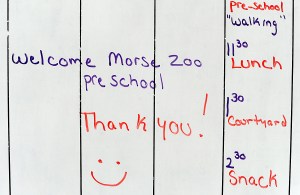 pre-school
"Walking"
11:30
Lunch
Welcome Morse Zoo
preschool
Thank you!
1:30
Courtyard
2:30
Snack